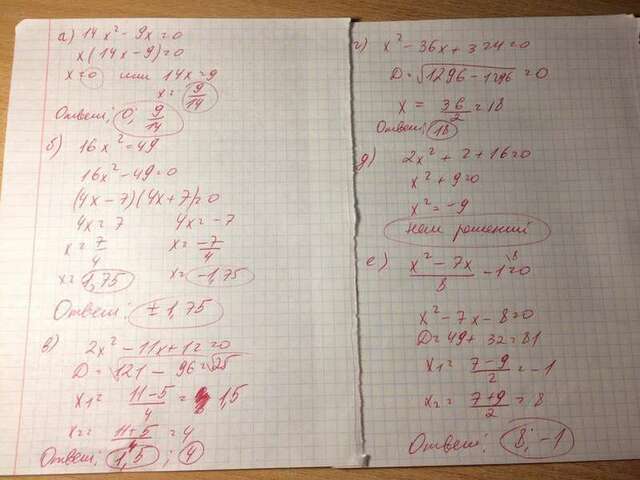 а) 14x² - 9x = 0
x(14x - 9) = 0
x = 0 или 14x = 9
x = 9/14
Ответ: 0; 9/14
б) 16x² = 49
16x² - 49 = 0
(4x - 7)(4x + 7) = 0
4x = 7 4x = -7
x = 7/4 x = -7/4
x = 1,75 x = -1,75
Ответ: ± 1,75
в) 2x² - 11x + 12 = 0
D = √121 - 96 = √25
x₁ = (11 - 5)/4 = 1,5
x₂ = (11 + 5)/4 = 4
Ответ: 1,5 ; 4
г) x² - 36x + 324 = 0
D = √1296 - 1296 = 0
x = 36/2 = 18
Ответ: 18
д) 2x² + 2 + 16 = 0
x² + 9 = 0
x² = -9
нет решений
е) (x² - 7x)/8 - 1 = 0
x² - 7x - 8 = 0
D = 49 + 32 = 81
x₁ = (7 - 9)/2 = -1
x₂ = (7 + 9)/2 = 8
Ответ: 8; -1